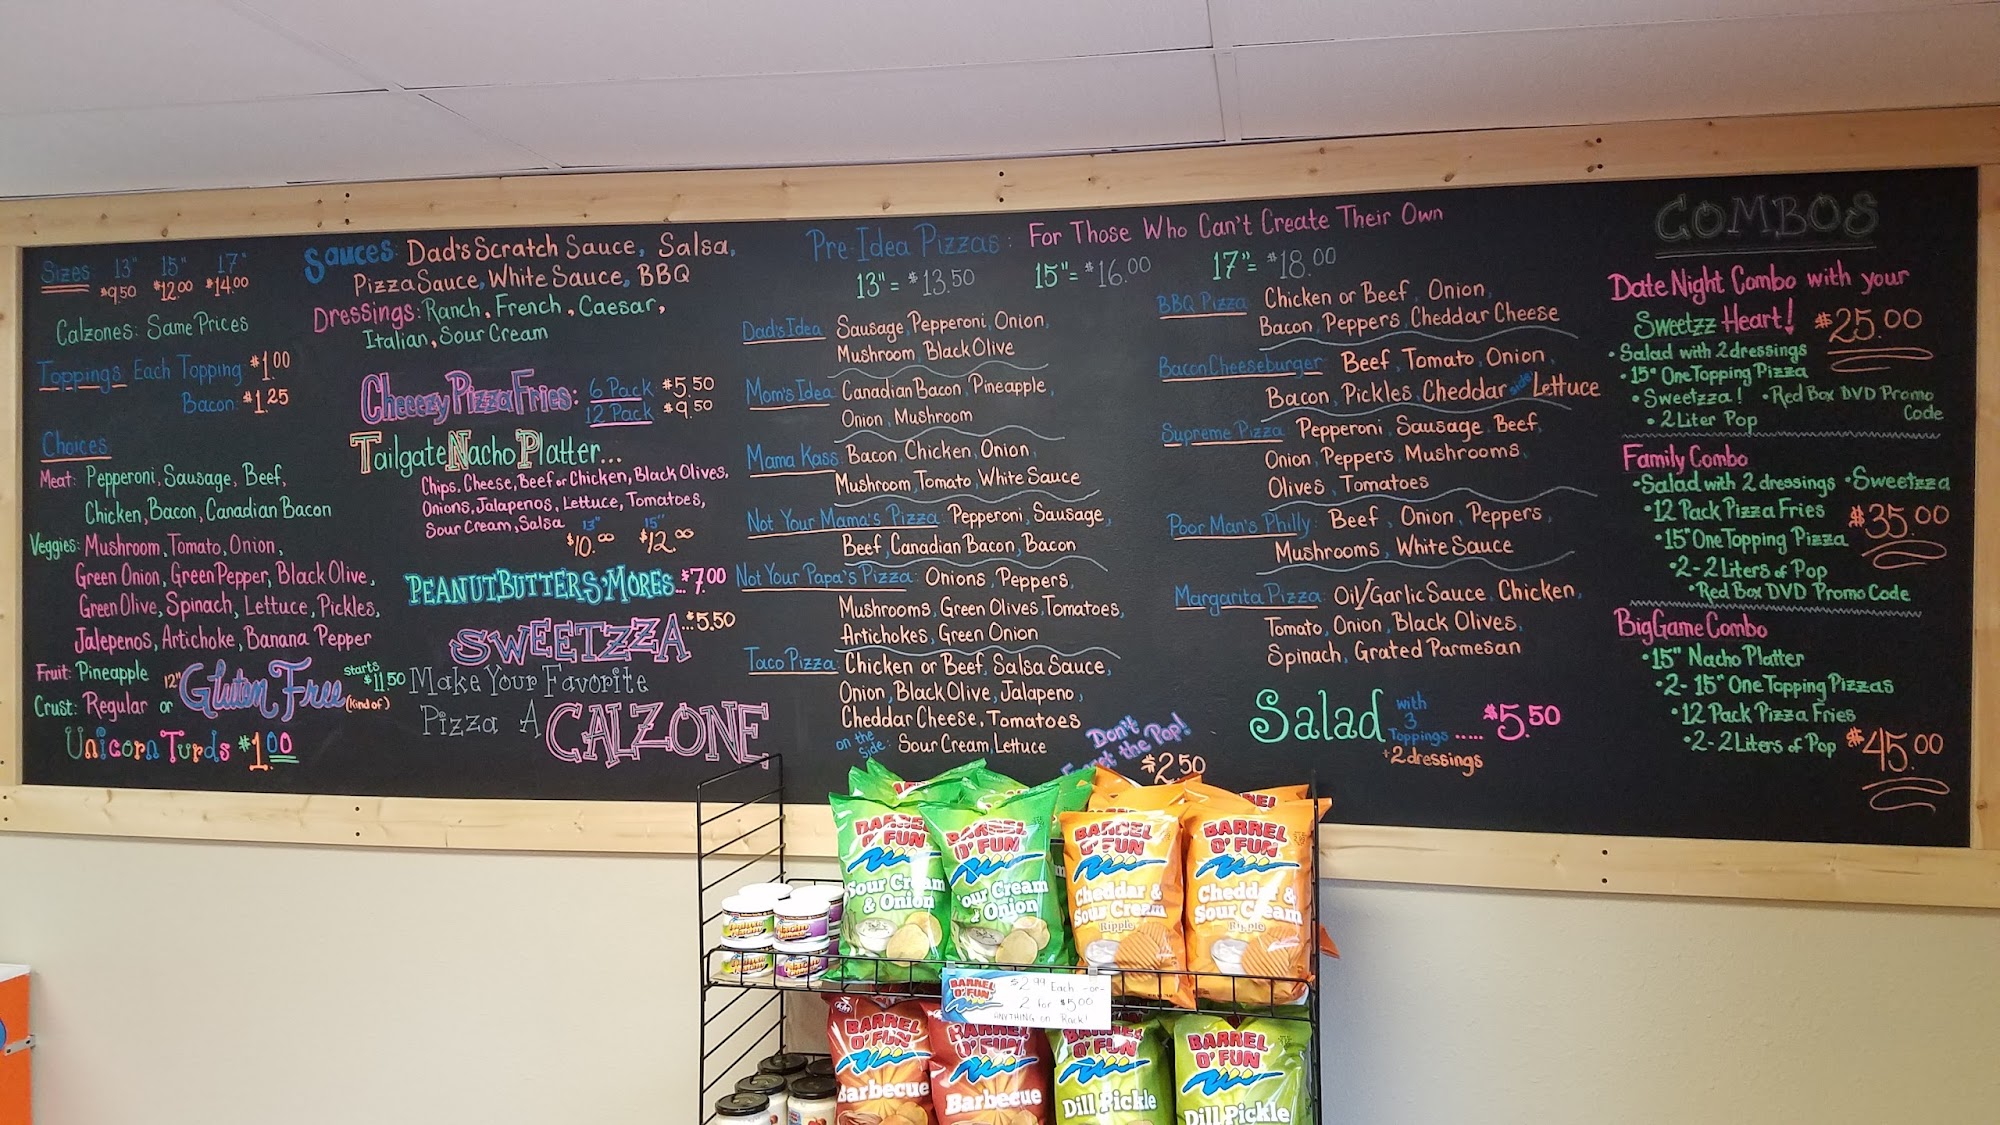 Sizes: 13" 15" 17"
$9.50 $12.00 $14.00
Calzones: Same Prices
Toppings Each Topping $1.00
Bacon: $1.25
Choices
Meat: Pepperoni, Sausage, Beef,
Chicken, Bacon, Canadian Bacon
Veggies: Mushroom, Tomato, Onion,
Green Onion, Green Pepper, Black Olive,
Green Olive, Spinach, Lettuce, Pickles,
Jalepenos, Artichoke, Banana Pepper
Fruit: Pineapple
Crust: Regular or 12" Gluten Free (Kind of) starts $11.50
Unicorn Turds $1.00
Sauces: Dad's Scratch Sauce, Salsa,
Pizza Sauce, White Sauce, BBQ
Dressings: Ranch, French, Caesar,
Italian, Sour Cream
Cheeezy Pizza Fries: 6 Pack $5.50
12 Pack $9.50
Tailgate Nacho Platter...
Chips, Cheese, Beef or Chicken, Black Olives,
Onions, Jalapenos, Lettuce, Tomatoes,
Sour Cream, Salsa 13" $10.00 15" $12.00
PEANUT BUTTER S'MORES... $7.00
SWEETZZA ...$5.50
Make Your Favorite
Pizza A CALZONE
Pre-Idea Pizzas: For Those Who Can't Create Their Own
13"= $13.50 15"= $16.00 17"= $18.00
Dad's Idea: Sausage, Pepperoni, Onion,
Mushroom, Black Olive
Mom's Idea: Canadian Bacon, Pineapple,
Onion, Mushroom
Mama Kass: Bacon, Chicken, Onion,
Mushroom, Tomato, White Sauce
Not Your Mama's Pizza: Pepperoni, Sausage,
Beef, Canadian Bacon, Bacon
Not Your Papa's Pizza: Onions, Peppers,
Mushrooms, Green Olives, Tomatoes,
Artichokes, Green Onion
Taco Pizza: Chicken or Beef, Salsa Sauce,
Onion, Black Olive, Jalapeno,
Cheddar Cheese, Tomatoes
on the side: Sour Cream, Lettuce
Don't
the Pop!
$2.50
BBQ Pizza: Chicken or Beef, Onion,
Bacon, Peppers, Cheddar Cheese
Bacon Cheeseburger: Beef, Tomato, Onion,
Bacon, Pickles, Cheddar side: Lettuce
Supreme Pizza: Pepperoni, Sausage, Beef,
Onion, Peppers, Mushrooms,
Olives, Tomatoes
Poor Man's Philly: Beef, Onion, Peppers,
Mushrooms, White Sauce
Margarita Pizza: Oil/Garlic Sauce, Chicken,
Tomato, Onion, Black Olives,
Spinach, Grated Parmesan
Salad with 3 Toppings ..... $5.50
+2 dressings
COMBOS
Date Night Combo with your
Sweetzz Heart! $25.00
• Salad with 2 dressings
• 15" One Topping Pizza
• Sweetzza! • Red Box DVD Promo Code
• 2 Liter Pop
Family Combo
• Salad with 2 dressings • Sweetzza
• 12 Pack Pizza Fries $35.00
• 15" One Topping Pizza
• 2-2 Liters of Pop
• Red Box DVD Promo Code
Big Game Combo
• 15" Nacho Platter
• 2-15" One Topping Pizzas
• 12 Pack Pizza Fries
• 2-2 Liters of Pop $45.00
BARREL O' FUN Sour Cream & Onion
BARREL O' FUN Sour Cream & Onion
BARREL O' FUN Cheddar & Sour Cream Ripple
BARREL O' FUN Cheddar & Sour Cream Ripple
BARREL O' FUN $2.99 Each -or-
2 for $5.00
ANYTHING on Rack!
BARREL O' FUN Barbecue
BARREL O' FUN Barbecue
BARREL O' FUN Dill Pickle
BARREL O' FUN Dill Pickle